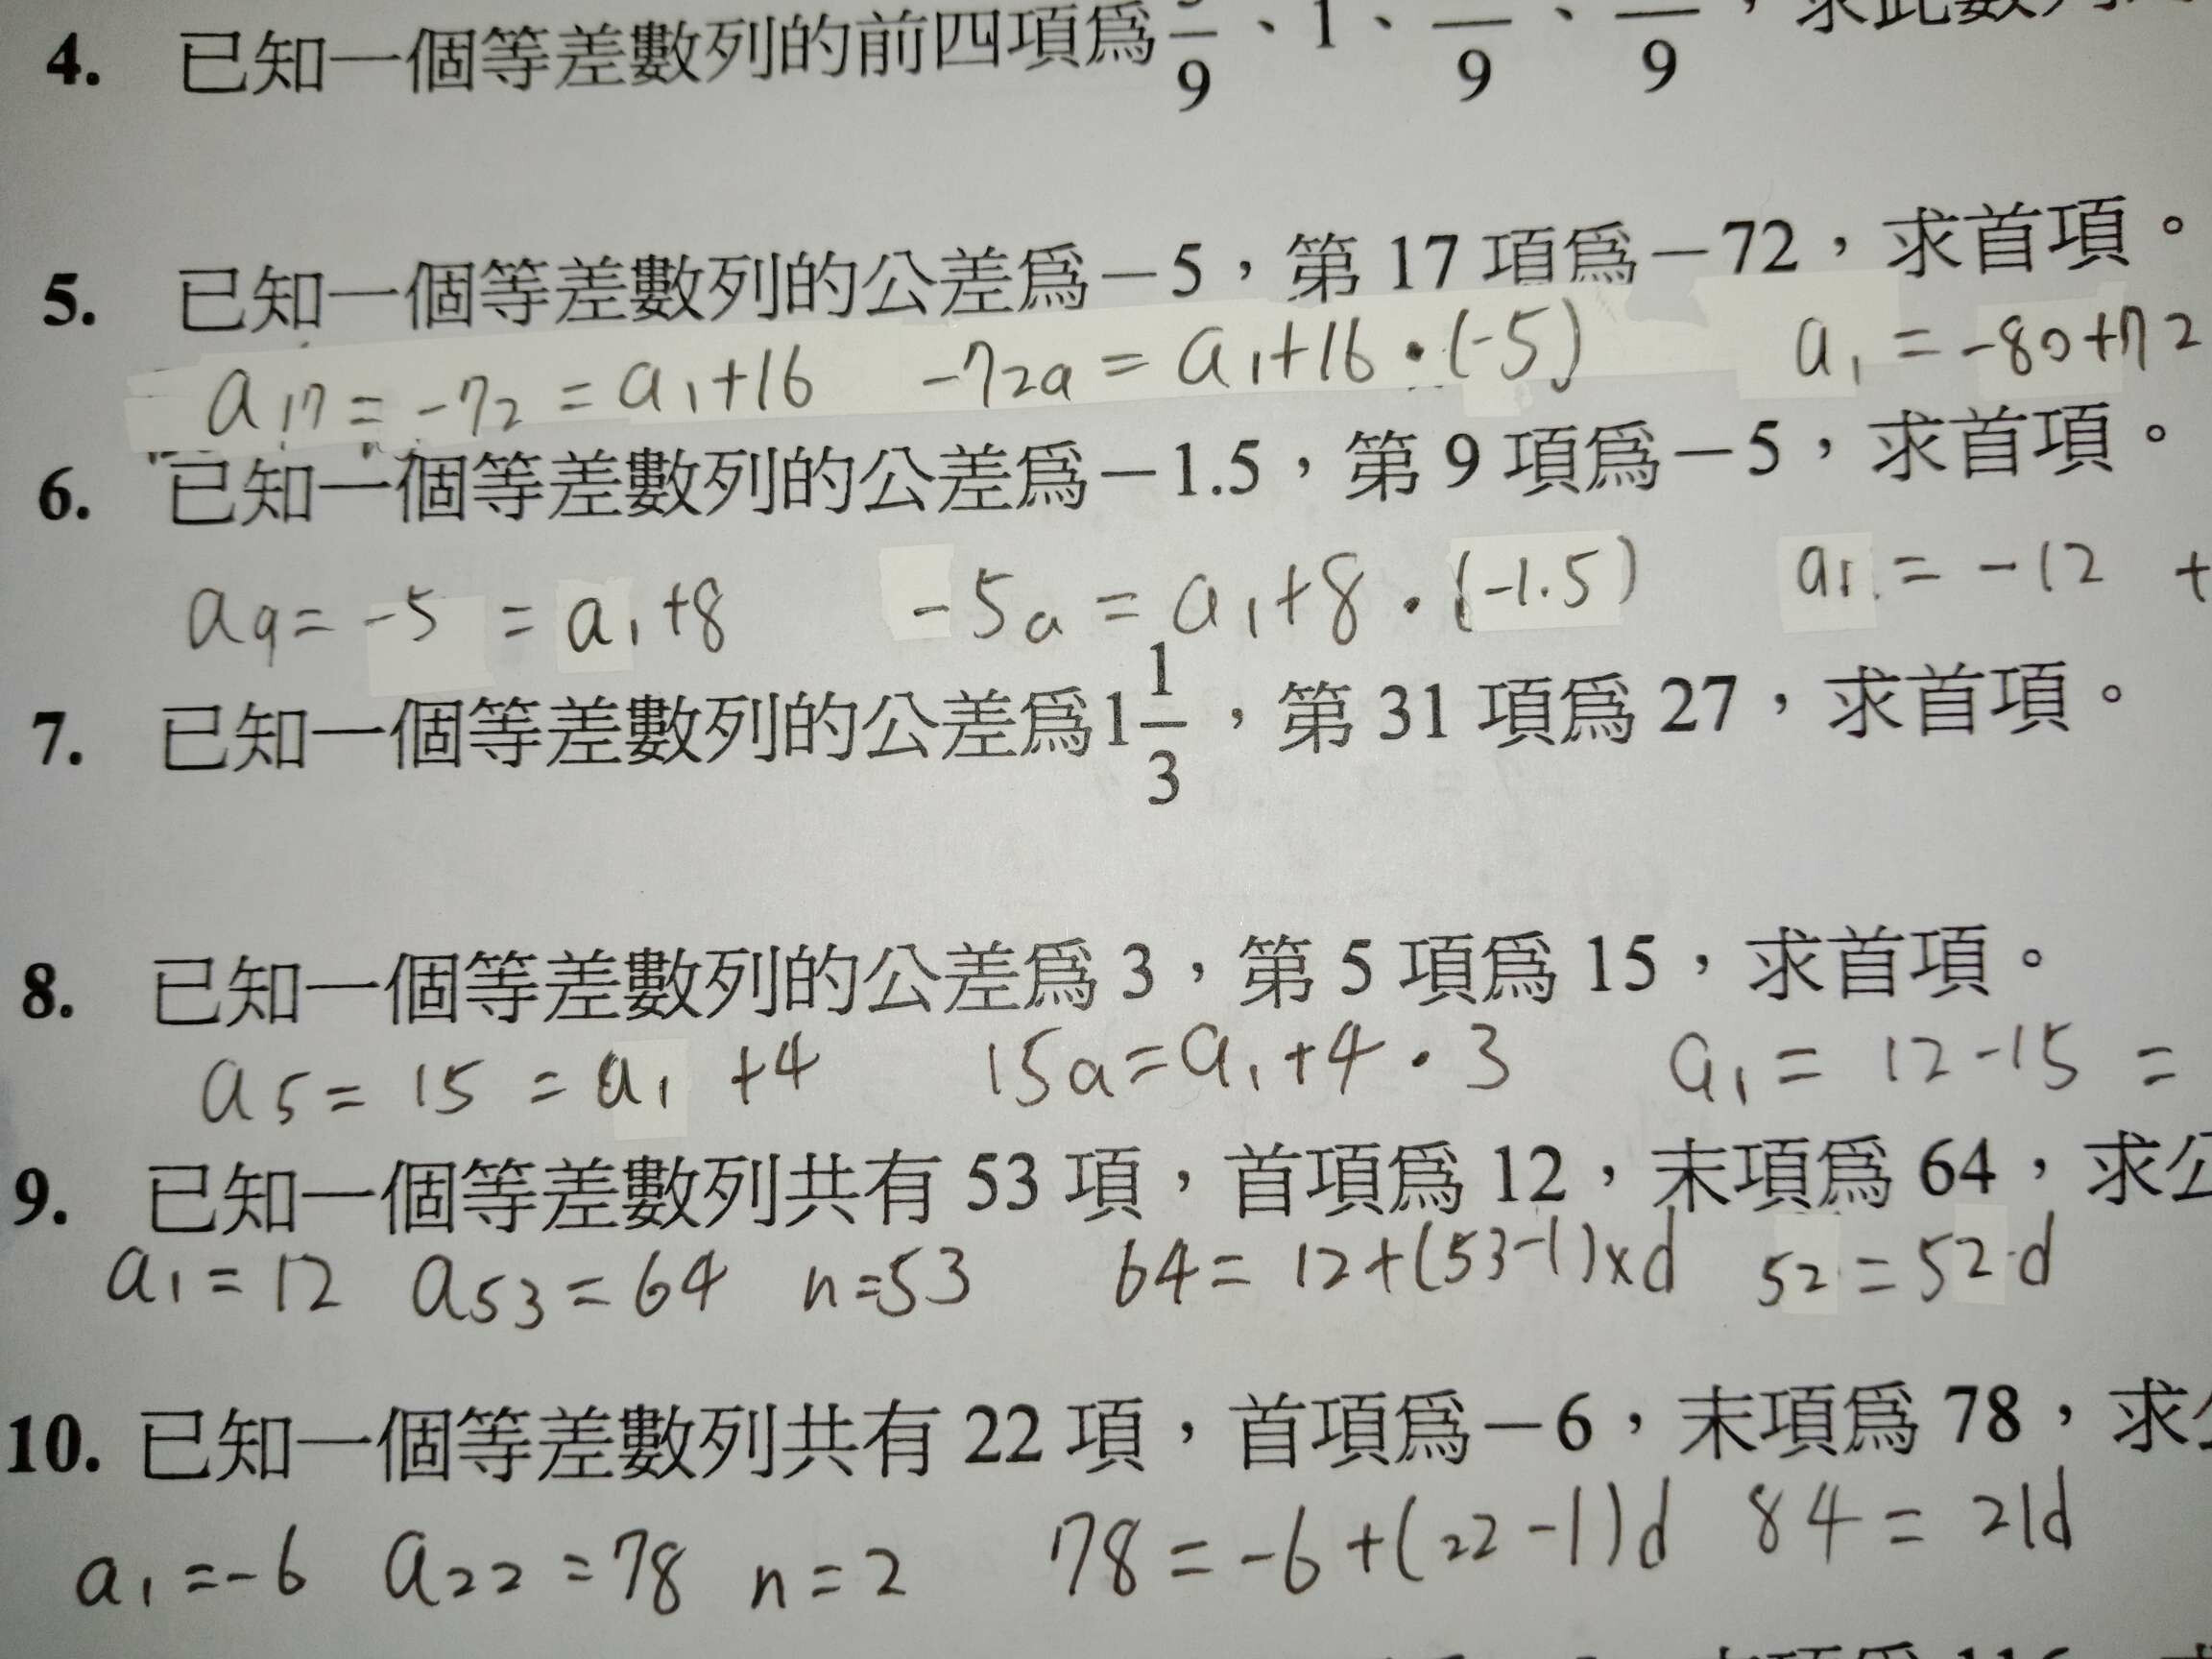 4. 已知一個等差數列的前四項為 /9、1、/9、/9，求此數列
5. 已知一個等差數列的公差為－5，第 17 項為－72，求首項。
a17=-72=a1+16 -72a=a1+16·(-5) a1=-80+72
6. 已知一個等差數列的公差為－1.5，第 9 項為－5，求首項。
a9=-5=a1+8 -5a=a1+8·(-1.5) a1=-12 +
7. 已知一個等差數列的公差為1 1/3，第 31 項為 27，求首項。
8. 已知一個等差數列的公差為 3，第 5 項為 15，求首項。
a5=15=a1+4 15a=a1+4·3 a1=12-15=
9. 已知一個等差數列共有 53 項，首項為 12，末項為 64，求公
a1=12 a53=64 n=53 64=12+(53-1)xd 52=52·d
10. 已知一個等差數列共有 22 項，首項為－6，末項為 78，求公
a1=-6 a22=78 n=2 78=-6+(22-1)d 84=21d